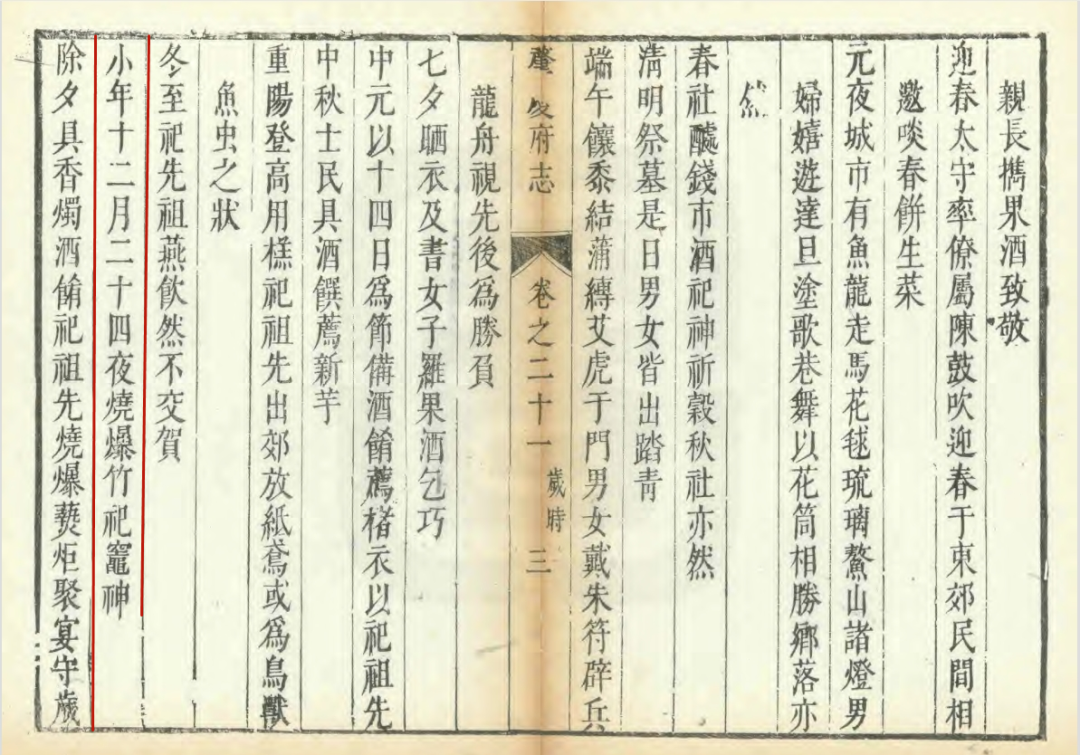 親長携果酒致敬
迎春太守率僚屬陳鼓吹迎春于東郊民間相
邀啖春餅生菜
元夜城市有魚龍走馬花毬琉璃鰲山諸燈男
婦嬉遊達旦塗歌巷舞以花筒相勝鄉落亦
然
春社醵錢市酒祀神祈穀秋社亦然
清明祭墓是日男女皆出踏青
端午饟黍結蒲縛艾虎于門男女戴朱符辟兵
肇慶府志
卷之二十一
歲時
三
龍舟視先後為勝負
七夕晒衣及書女子羅果酒乞巧
中元以十四日為節備酒餚薦楮衣以祀祖先
中秋士民具酒饌薦新芋
重陽登高用糕祀祖先出郊放紙鳶或為鳥獸
魚虫之狀
冬至祀先祖燕飲然不交賀
小年十二月二十四夜燒爆竹祀竈神
除夕具香燭酒餚祀祖先燒爆爇炬聚宴守歲